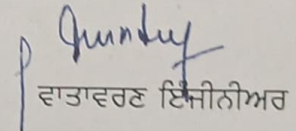 ਵਾਤਾਵਰਣ ਇੰਜੀਨੀਅਰ